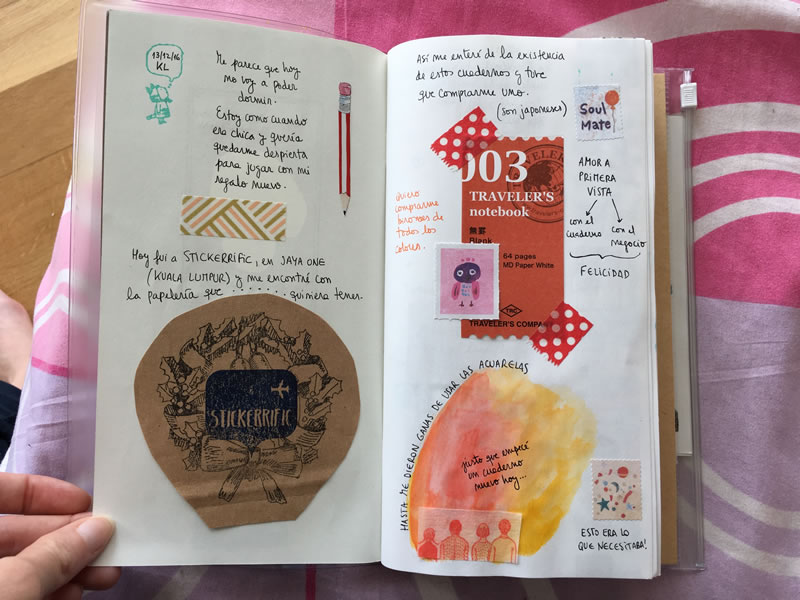 13/12/16
KL
Me parece que hoy
no voy a poder
dormir.
Estoy como cuando
era chica y quería
quedarme despierta
para jugar con mi
regalo nuevo.
Hoy fui a STICKERRIFIC, en JAYA ONE
(KUALA LUMPUR) y me encontré con
la papelería que ........ quisiera tener.
STICKERRIFIC
Así me enteré de la existencia
de estos cuadernos y tuve
que comprarme uno.
(son japoneses)
SOUL
MATE
003
TRAVELER'S
notebook
無罫
Blank
64 pages
MD Paper White
TRC
TRAVELER'S COMPA
quiero
comprarme
biromes de
todos los
colores.
AMOR A
PRIMERA
VISTA
con el
cuaderno
con el
negocio
FELICIDAD
HASTA ME DIERON GANAS DE USAR LAS ACUARELAS
justo que empecé
un cuaderno
nuevo hoy...
ESTO ERA LO
QUE NECESITABA!